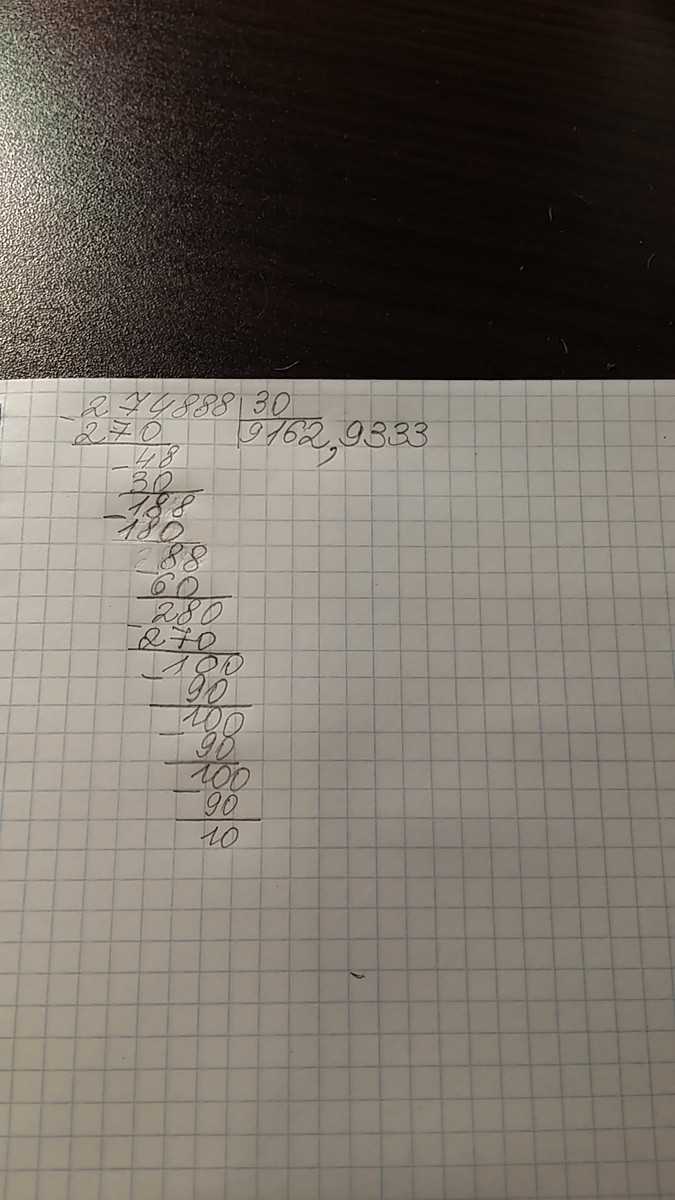 274888 30
270 9162,9333
- 48
30
- 188
180
88
60
280
- 270
100
- 90
100
- 90
100
- 90
10